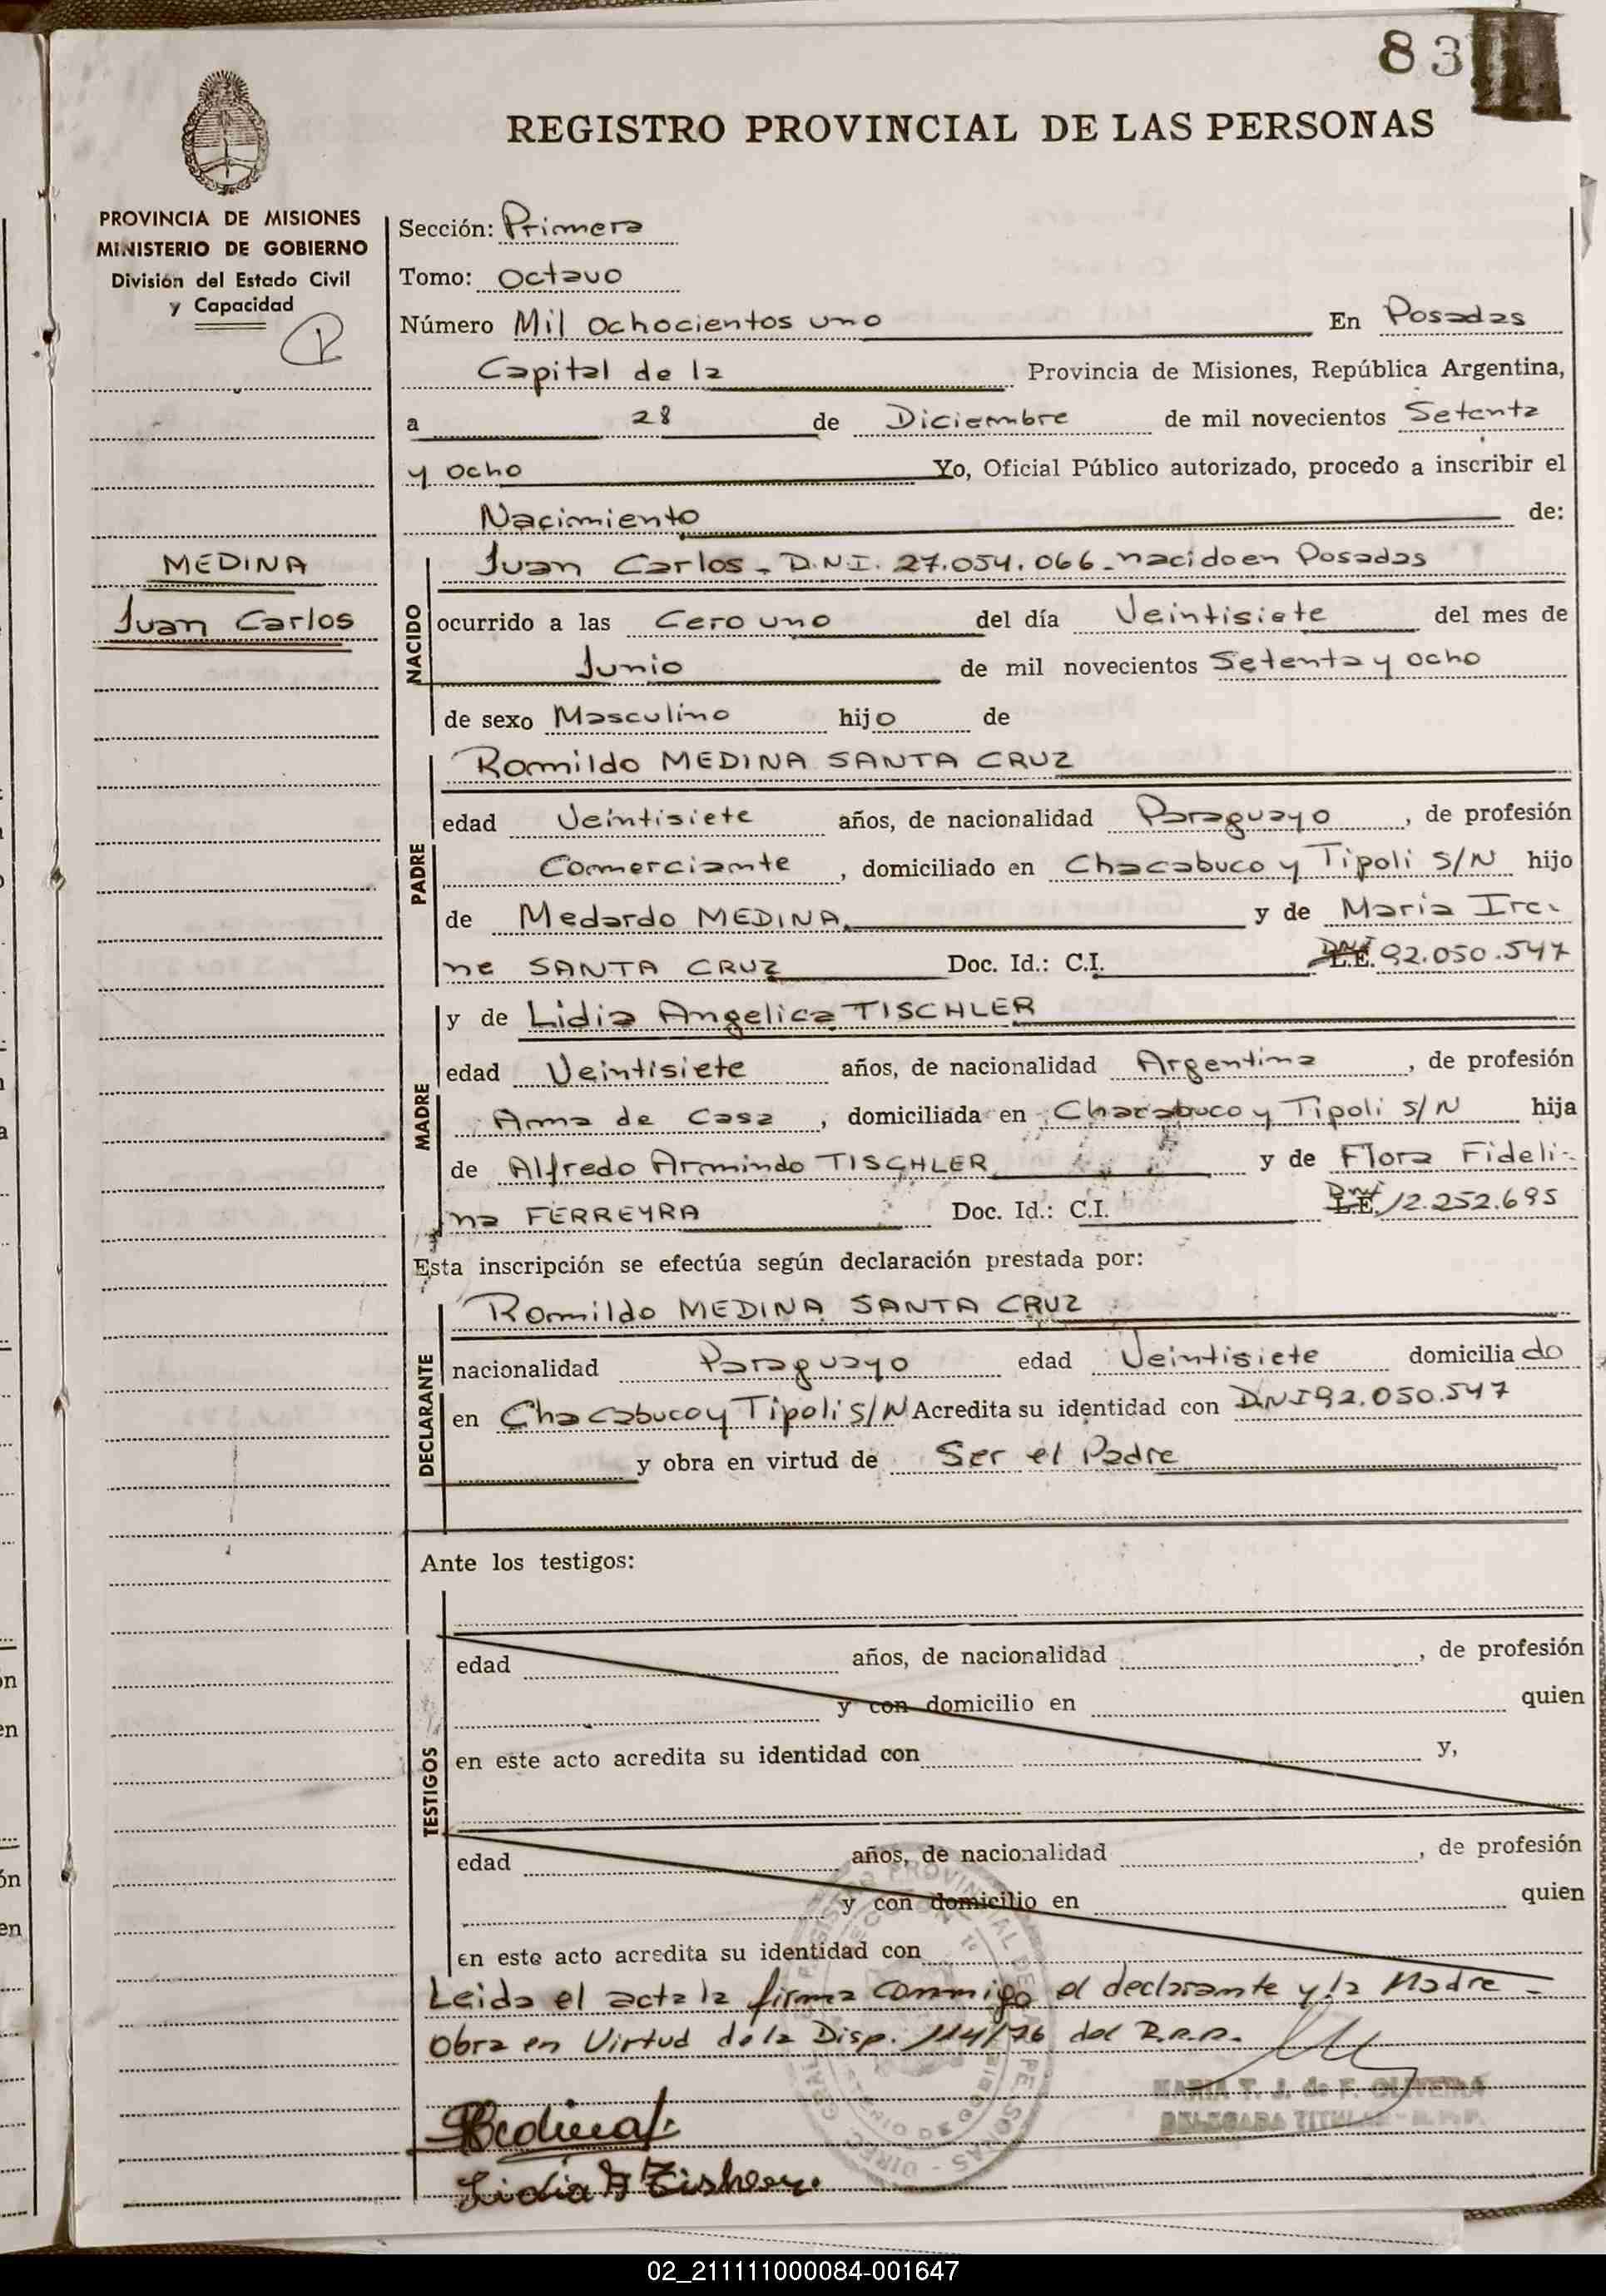 83
REGISTRO PROVINCIAL DE LAS PERSONAS
PROVINCIA DE MISIONES
MINISTERIO DE GOBIERNO
División del Estado Civil
y Capacidad
MEDINA
Juan Carlos
Sección: Primera
Tomo: Octavo
Número Mil ochocientos uno En Posadas
Capital de la Provincia de Misiones, República Argentina,
a 28 de Diciembre de mil novecientos Setenta
y ocho Yo, Oficial Público autorizado, procedo a inscribir el
Nacimiento de:
NACIDO
Juan Carlos - D.N.I. 27.054.066 - nacido en Posadas
ocurrido a las Cero uno del día Veintisiete del mes de
Junio de mil novecientos Setenta y ocho
de sexo Masculino hijo de
PADRE
Romildo MEDINA SANTA CRUZ
edad Veintisiete años, de nacionalidad Paraguayo, de profesión
Comerciante, domiciliado en Chacabuco y Tipoli S/N hijo
de Medardo MEDINA y de Maria Ire-
ne SANTA CRUZ Doc. Id.: C.I. L.E. DNI 92.050.547
MADRE
y de Lidia Angelica TISCHLER
edad Veintisiete años, de nacionalidad Argentina, de profesión
Ama de Casa, domiciliada en Chacabuco y Tipoli S/N hija
de Alfredo Armindo TISCHLER y de Flora Fideli-
na FERREYRA Doc. Id.: C.I. L.E. DNI 12.252.695
Esta inscripción se efectúa según declaración prestada por:
DECLARANTE
Romildo MEDINA SANTA CRUZ
nacionalidad Paraguayo edad Veintisiete domiciliado
en Chacabuco y Tipoli S/N Acredita su identidad con DNI 92.050.547
y obra en virtud de Ser el Padre
Ante los testigos:
TESTIGOS
edad años, de nacionalidad , de profesión
y con domicilio en quien
en este acto acredita su identidad con y,
edad años, de nacionalidad , de profesión
y con domicilio en quien
en este acto acredita su identidad con
Leida el acta la firma conmigo el declarante y la Madre -
Obra en Virtud de la Disp. 114/76 del
MARIA T. J. de F. OLIVEIRA
DELEGADA TITULAR - R.P.P.
Medina
Lidia A Tishler.
02_211111000084-001647